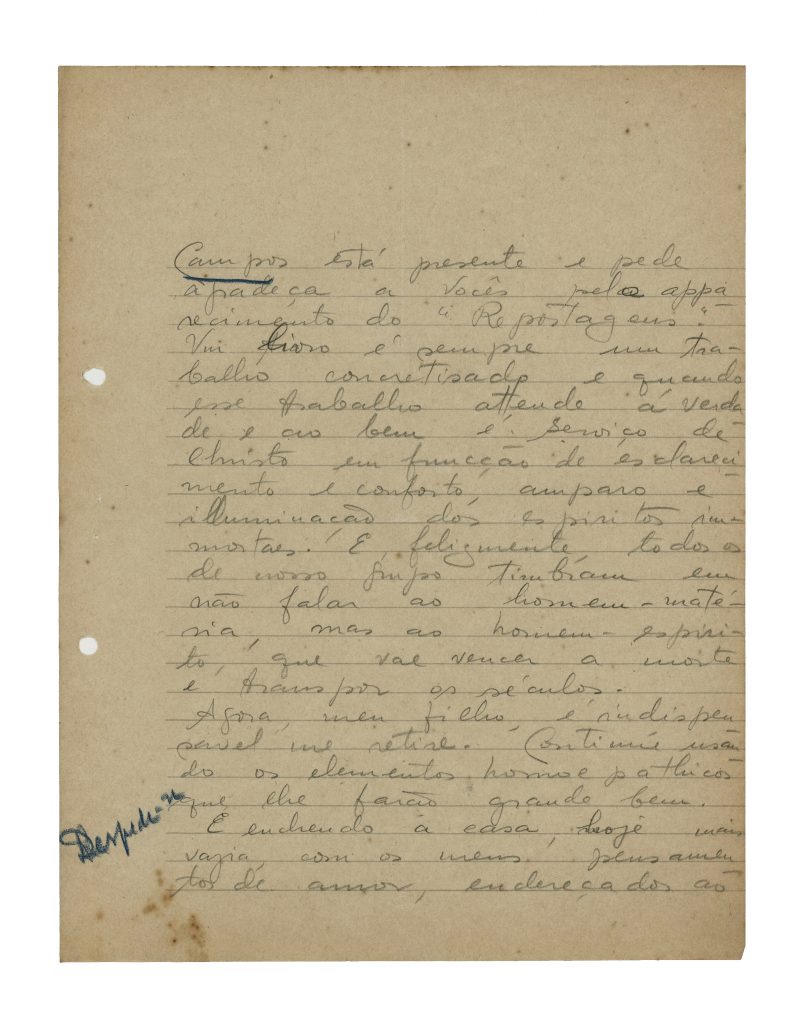 Campos está presente e pede
agradeça a vocês pelo appa-
recimento do "Reportagens".
Um livro é sempre um tra-
balho concretisado e quando
esse trabalho attende á verda
de e ao bem é serviço de
Christo em funcção de esclareci
mento e conforto, amparo e
illuminação dos espiritos im-
mortaes. E, felizmente, todos os
de nosso grupo timbram em
não falar ao homem-maté-
ria, mas ao homem-espiri-
to, que vae vencer a morte
e transpor os séculos.
Agora, meu filho, é indispen
savel me retire. Continúe usan
do os elementos homoepathicos
que lhe farão grande bem.
E enchendo a casa, hoje mais
vazia, com os meus pensamen
tos de amor, endereçados ao
Despede-se